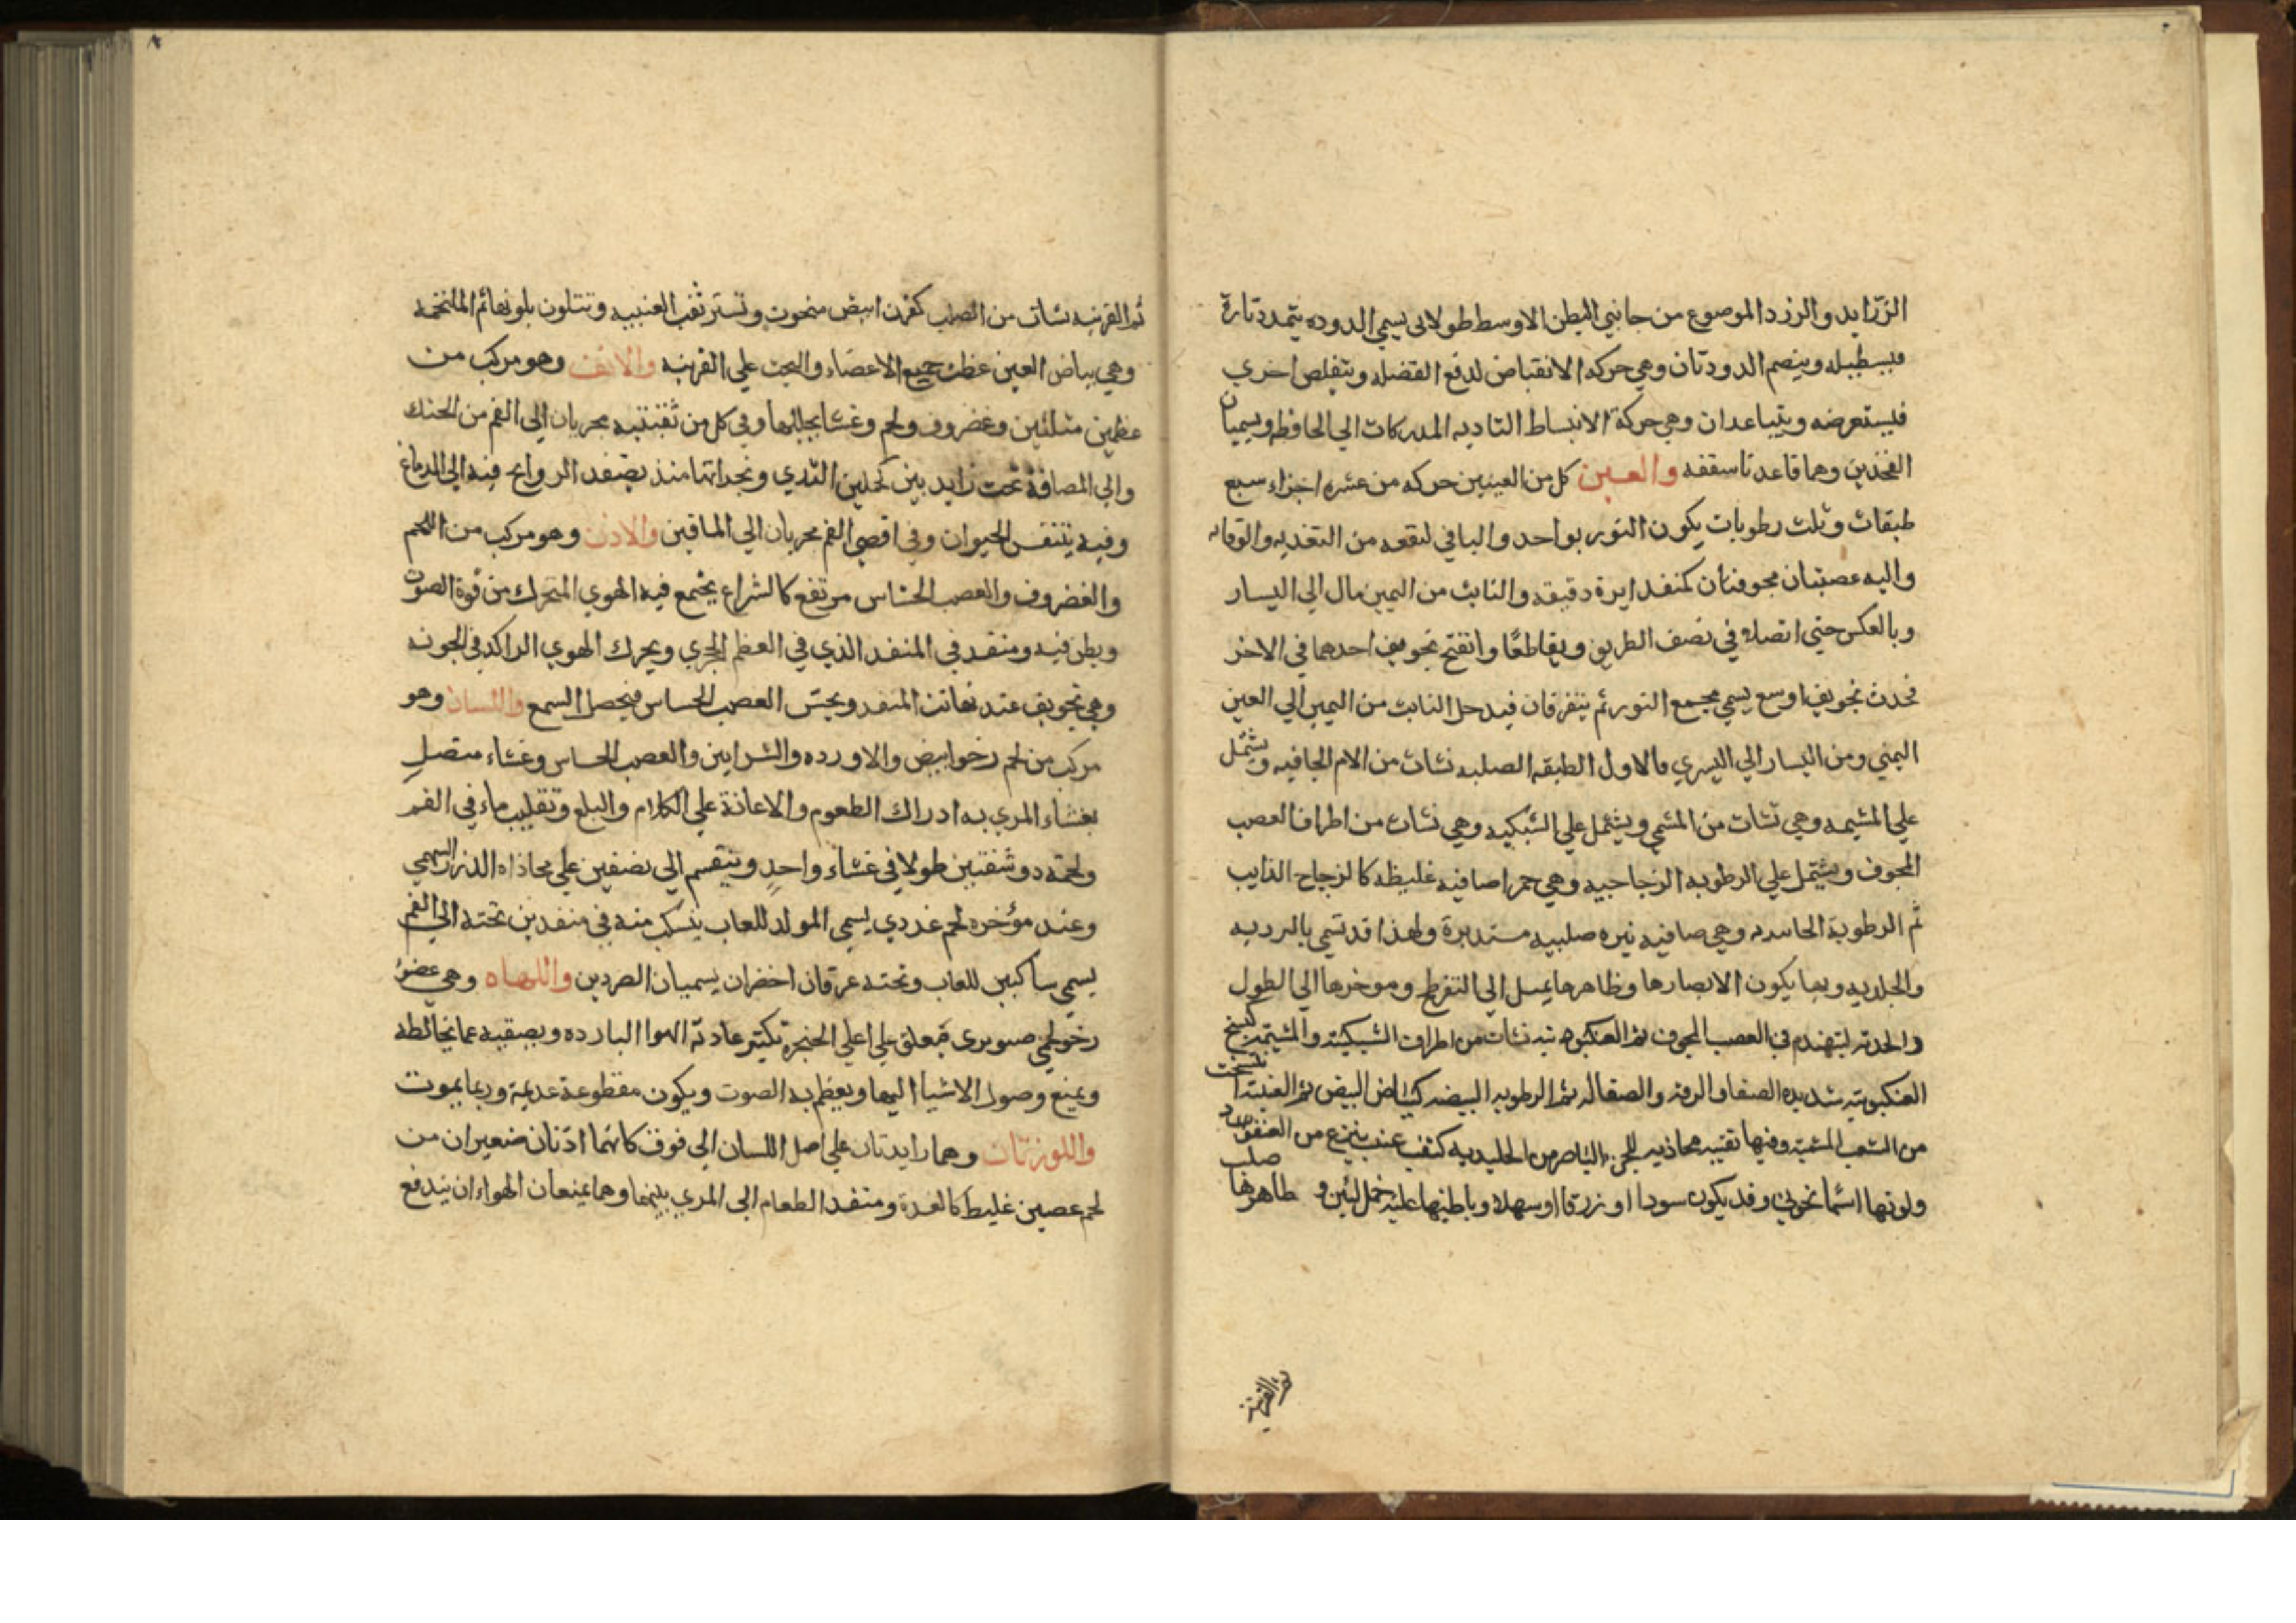 الزرايد والزرد الموضوع من جانبي البطن الاوسط طولا لى يسمي الدوده يتمدد تارة
فيسطبله وينصم الدودتان وهي حركه الانقباض لدفع الفضله ويتقلص اخري
فيستعرضه ويتباعدان وهي حركة الانبساط التاديه المدركات الي الحافظه ويسميان
الفخذين وهما قاعدتا سقفه والعين كل من العينين حركه من عشره اجزاء سبع
طبقات وثلث رطوبات يكون النور بواحد والباقي لنفعه من التغذيه والوقايه
واليه عصبتان مجوفتان كمنفد ابرة دقيقه والنابت من اليمين مال الي اليسار
وبالعكس حتي اتصلا في نصف الطريق ويقاطعا وانفتح تجويف احدهما في الاخر
فحدث تجويف اوسع يسمي مجمع النور ثم يتفرقان فيدخل النابت من اليمين الي العين
اليمني ومن اليسار الي اليسري فالاول الطبقه الصلبه نشات من الام الجافيه ويشتمل
علي المشيمه وهي نشات من المشمي ويشتمل علي الشبكيه وهي نشات من اطراف العصب
المجوف ويشتمل علي الرطوبه الزجاجيه وهي حمرا صافيه غليظه كالزجاج الذايب
ثم الرطوبة الجامده وهي صافيه نيره صلبيه مستديرة ولهذا قد تسمي بالبرديه
والجلديه وبها يكون الابصارها وظاهرها يميل الي التفرطح وموخرها الي الطول
والحدته لتهندم في العصب المجوف ثم العنكبوتيه نشات من اطراف الشبكيته والمشيمه كنسخ
العنكبوتيه شديده الصفا والرقه والصقاله ثم الرطوبه البيضه كبياض البيض ثم العنبيه نسجت
من الشعب المشميه وفيها ثقبه محاذيه للجزء الباصر من الجليديه كثقب عنب ينزع من العنقود
ولونها اسمانجوني وقد يكون سودا او زرقا او سهلا وباطنها عليه خمل لين و ظاهرها صلب
ثم القرنيه
ثم القرنيه نشات من الصلب كقرن ابيض منحوت وتستر ثقب العنبيه وتتلون بلونها ثم الملتحمه
وهي بياض العين غطت جميع الاعضاء والتحمت علي القرنيه والانف وهو مركب من
عظمين مثلثين وغضروف ولحم وغشا يجللها وفي كل من ثقبتيه مجريان الي الفم من الحنك
والي المصافة تحت زايدين كحلمتي الثدي ونجد انها منذ يصنفد الروايح فيه الي الدماغ
وفيه يتنفس الحيوان وفي اقصي الفم مجريان الي الماقين والاذن وهو مركب من اللحم
والغضروف والعصب الحساس مرتفع كالشراع يجتمع فيه الهوي المتحرك من قوة الصوت
ويطن فيه ومنفد في المنفد الذي في العظم الحجري ويحرك الهوي الراكد في الجونه
وهي تجويف عند نهاتت المنفد ويحتس العصب الحساس فيحصل السمع واللسان وهو
مركب من لحم رخو ابيض والاورده والشرايين والعصب الحساس وغشاء متصل
بغشاء المري به ادراك الطعوم والاعانة علي الكلام والبلع وتقليب ماء في الفم
ولحمه دو شقتين طولا في غشاء واحد وينقسم الي نصفين علي محاذاه الدرز السهمي
وعند مؤخره لحم غددي يسمي المولد للعاب ينسكب منه في منفدين تحته الي الفم
يسمي ساكبين للعاب وتحته عرقان اخضران يسميان الصردين واللهاه وهي عضو
رخو لحمي صنوبري معلق علي اعلي الحنجرة تكسر عاديه الهوا البارده ويصفيه عما يخالطه
ويمنع وصول الاشيا اليها ويعظم به الصوت ويكون مقطوعة عديمة وربما يموت
واللوزتان وهما زايدتان علي اصل اللسان الي فوق كانهما اذنان صغيران من
لحم عصبين غليظ كالغدة ومنفد الطعام الي المري بينهما وهما يمنعان الهواء ان يندفع